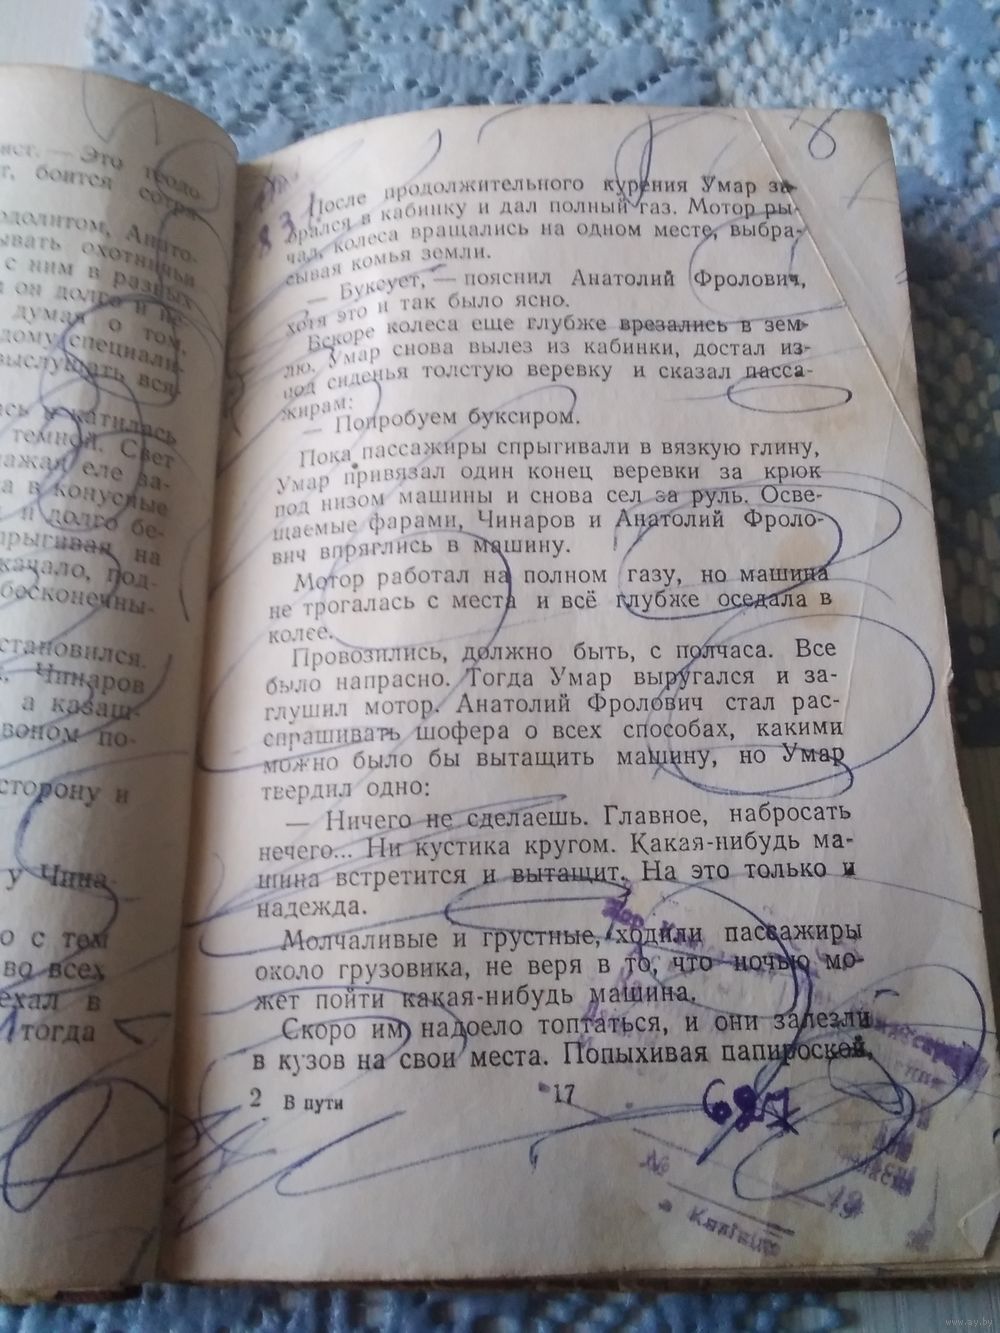 ист. — Это теодо-
т, боится сотря-
одолитом, Анато-
ывать охотничьи
с ним в разных
он долго и не-
думая о том,
дому специали-
выслушать вся-
ась и катилась
темной. Свет
еле за-
а в конусные
и долго бе-
прыгивая на
качало, под-
бесконечны-
становился.
Чинаров
а казащ-
воном по-
сторону и
у Чина-
о с тем
во всех
ехал в
тогда
8
83
После продолжительного курения Умар за-
брался в кабинку и дал полный газ. Мотор ры-
чал, колеса вращались на одном месте, выбра-
сывая комья земли.
— Буксует, — пояснил Анатолий Фролович,
хотя это и так было ясно.
Вскоре колеса еще глубже врезались в зем-
лю. Умар снова вылез из кабинки, достал из-
под сиденья толстую веревку и сказал пасса-
жирам:
— Попробуем буксиром.
Пока пассажиры спрыгивали в вязкую глину,
Умар привязал один конец веревки за крюк
под низом машины и снова сел за руль. Осве-
щаемые фарами, Чинаров и Анатолий Фроло-
вич впряглись в машину.
Мотор работал на полном газу, но машина
не трогалась с места и всё глубже оседала в
колее.
Провозились, должно быть, с полчаса. Все
было напрасно. Тогда Умар выругался и за-
глушил мотор. Анатолий Фролович стал рас-
спрашивать шофера о всех способах, какими
можно было бы вытащить машину, но Умар
твердил одно:
— Ничего не сделаешь. Главное, набросать
нечего... Ни кустика кругом. Какая-нибудь ма-
шина встретится и вытащит. На это только и
надежда.
Молчаливые и грустные, ходили пассажиры
около грузовика, не веря в то, что ночью мо-
жет пойти какая-нибудь машина.
Скоро им надоело топтаться, и они залезли
в кузов на свои места. Попыхивая папироской,
2 В пути
17
681
№
19
www.ay.by